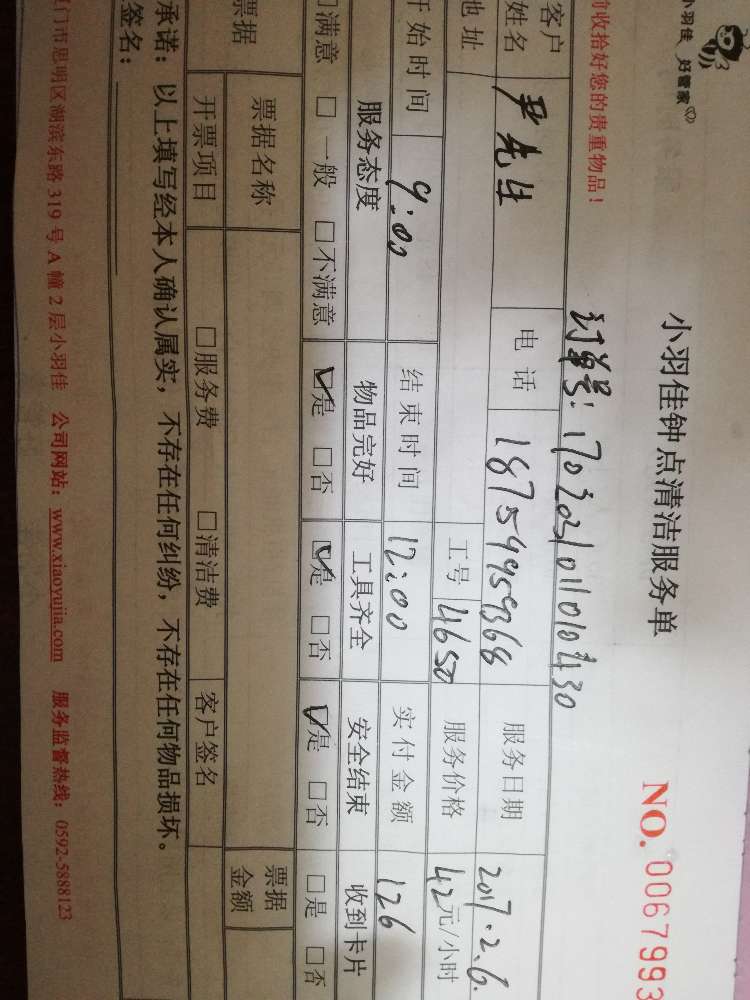 小羽佳 好管家
小羽佳钟点清洁服务单
NO. 0067993
前收拾好您的贵重物品！
订单号：
客户姓名 尹先生 电话 18759959368 服务日期 2017.2.6.
地址 工号 4650 服务价格 42元/小时
开始时间 9:00 结束时间 12:00 实付金额 126
服务态度 物品完好 工具齐全 安全结束 收到卡片
□满意 □一般 □不满意 ☑是 □否 ☑是 □否 ☑是 □否 □是 □否
票据 票据名称 票据金额
开票项目 □服务费 □清洁费 客户签名
承诺：以上填写经本人确认属实，不存在任何纠纷，不存在任何物品损坏。
签名：
厦门市思明区湖滨东路319号A幢2层小羽佳 公司网站：www.xiaoyujia.com 服务监督热线：0592-5888123